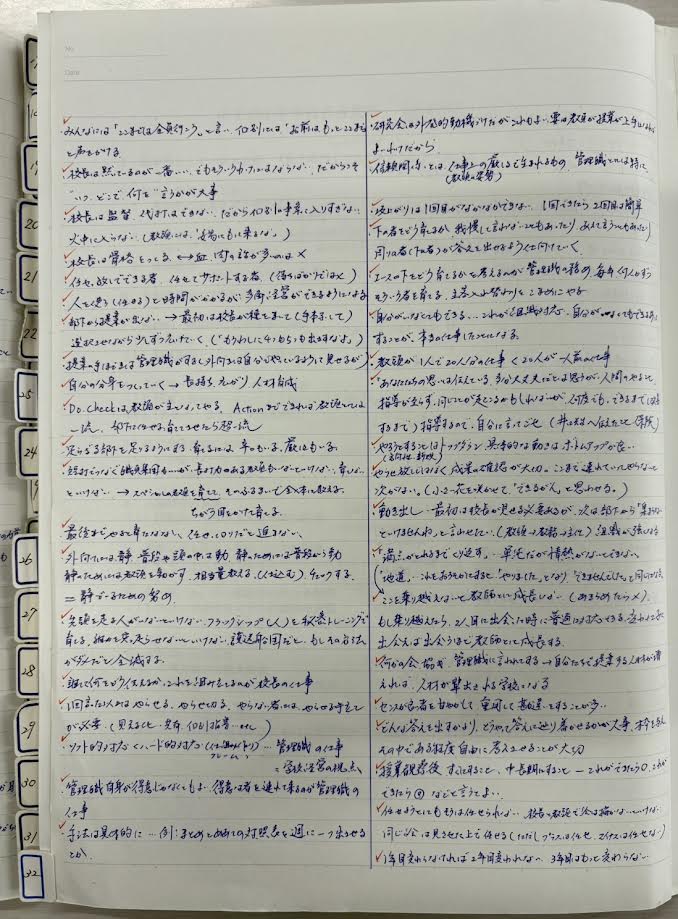 No.
Date
17
18
19
20
21
22
25
24
26
27
28
29
30
31
32
・みんなには「ここまでは全員行こう」と言い、個別には「お前はもっとここまで」
と声をかける
・校長は黙っているのが一番… でもそういうわけにはいかない。だからこそ
“いつ、どこで、何を”言うかが大事
・校長は監督 代打はできない… だから個別の事案に入りすぎない
火中に入らない（教頭には、
・校長は骨格をつくる ⇔ 血、肉の話が多いのは×
・任せ放しできる者、任せてサポートする者、（待ちばかりでは×）
・人を使う（任せる）と時間がかかるが、学校運営ができるようになる
・部下から提案が出ない → 最初は校長が種をまく（手本として）
選択させながら少しずつ広げていく、
・提案の手ほどきは管理職がするが外向きは自分でやっているように見せる
・自分の分身をつくっていく → 長持ち、広がり 人材育成
・Do. Checkは教頭が主となってやる。Actionまでできれば教頭としては
一流、部下に任せ、育てさせたら超一流
・足らざる部下を足りるようにする 育てるには、辛さもいる。厳しさもいる。
といけない → スペシャルな教頭を育てて、そのふるまいで全体に教える。
ちがう目をかけて育てる。
最後までやると育たない。任せっぱなしだと進まない。
・外向きには静 普段や課の中は動 静のためには普段から動
静のためには教頭を動かす。相当量教える。（仕込む）チェックする。
＝静でいるための努力
・先頭を走る人がいないといけない。フラッグシップ（人）と秘密トレーニングで
育てる。誰かを突っ走らせないといけない。護送船団だと、もしその方法
がダメだと全滅する。
・誰に何をどう伝えるか、これを組み立てるのが校長の仕事
・1回言えば人はやらせる。やらせてみる。やらない者には、やらせる手立て
が必要（見える化・共有、個別指導…etc）
・ソフト的対応＜ハード的対応（仕組み） … 管理職の仕事
フレーム
＝学校運営の視点
・管理職自身が得意じゃなくてもよい。得意な者を連れて来るのが管理職の
仕事
・手法は具体的に … 例：まとめとめあての対照表を週に一つ出させる
とか
・研究会は外発的動機づけだがこれもよい。要は教員が授業が上手になれば
よいわけだから
・信頼関係とは、仕事上の厳しさで生まれるもの 管理職としては特に
（教頭の姿勢）
・坂上がりは1回目がなかなかできない。1回できたら2回目は簡単
・下の者をどう育てるか 我慢して言わないこともあったり、あえて言うこともあったり
同じ者（下の者）が答えを出せるように仕向けていく
・エースの下をどう育てるかを考えるのが管理職の務め。毎年何人かずつ
そういう者を育てる。
・自分がいなくてもできる… これが組織対応。自分がいなくてもできるように
することが、本当の仕事をしたことになる。
・教頭が1人で20人分の仕事＜20人が一人前の仕事
・あなたたちの思いは伝えている。多分大丈夫だとは思うが、人間のやること
指導が至らず、同じことが起こるかもしれないが、何度でも、できるまで（成功
するまで）指導するので、自分に言ってこい（
・やろうとすることはトップダウン、具体的な動きはボトムアップが良い
・やらせ放しではなく成果の確認が大切。ここまで連れていってやらないと
次がない。（小さな花を咲かせて「できるがん」と思わせる。）
・動き出し…最初は校長が見せる必要あるが、次は部下から「
といけませんね」と言わせたい。（教頭→教務→主任）組織が強くなる
・満点がとれるまでくり返す… 単純だが情熱がないとできない
「地道」…これをおろそかにすると「やりました」となり「できませんでした」と同じになる
・ここを乗り越えないと教師として成長しない（あきらめたら×）
もし乗り越えたら、2人目に出会った時に普通に対応できる。
出会えば出会うほど教師として成長する。
・何かの会、協議で管理職に言われてする → 自分たちで提案する人材が増
えれば、人材が輩出される学校になる
・どんな答えを出すかより、どうやって答えに辿り着かせるかが大事。
その中である程度自由に考えさせることが大切
・授業観察後 すぐにすること、中長期にすること
できたら◎などと言うとよい
・任せようとにもうまくは任せられない。校長と教頭で絵は描かないといけない。
同じ絵は見させた上で任せる（ただしプラスは任せ、マイナスは任せない）
・1年目変わらなければ2年目変われない。3年目はもっと変わらない…